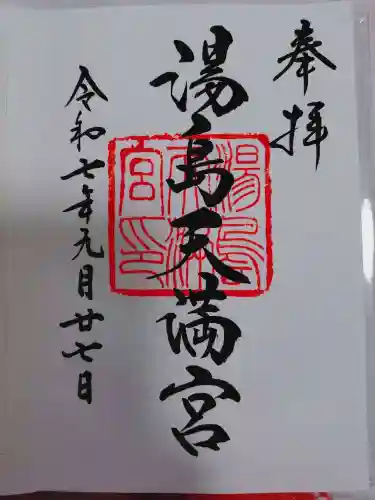 奉拝
湯島天満宮
令和七年九月廿七日